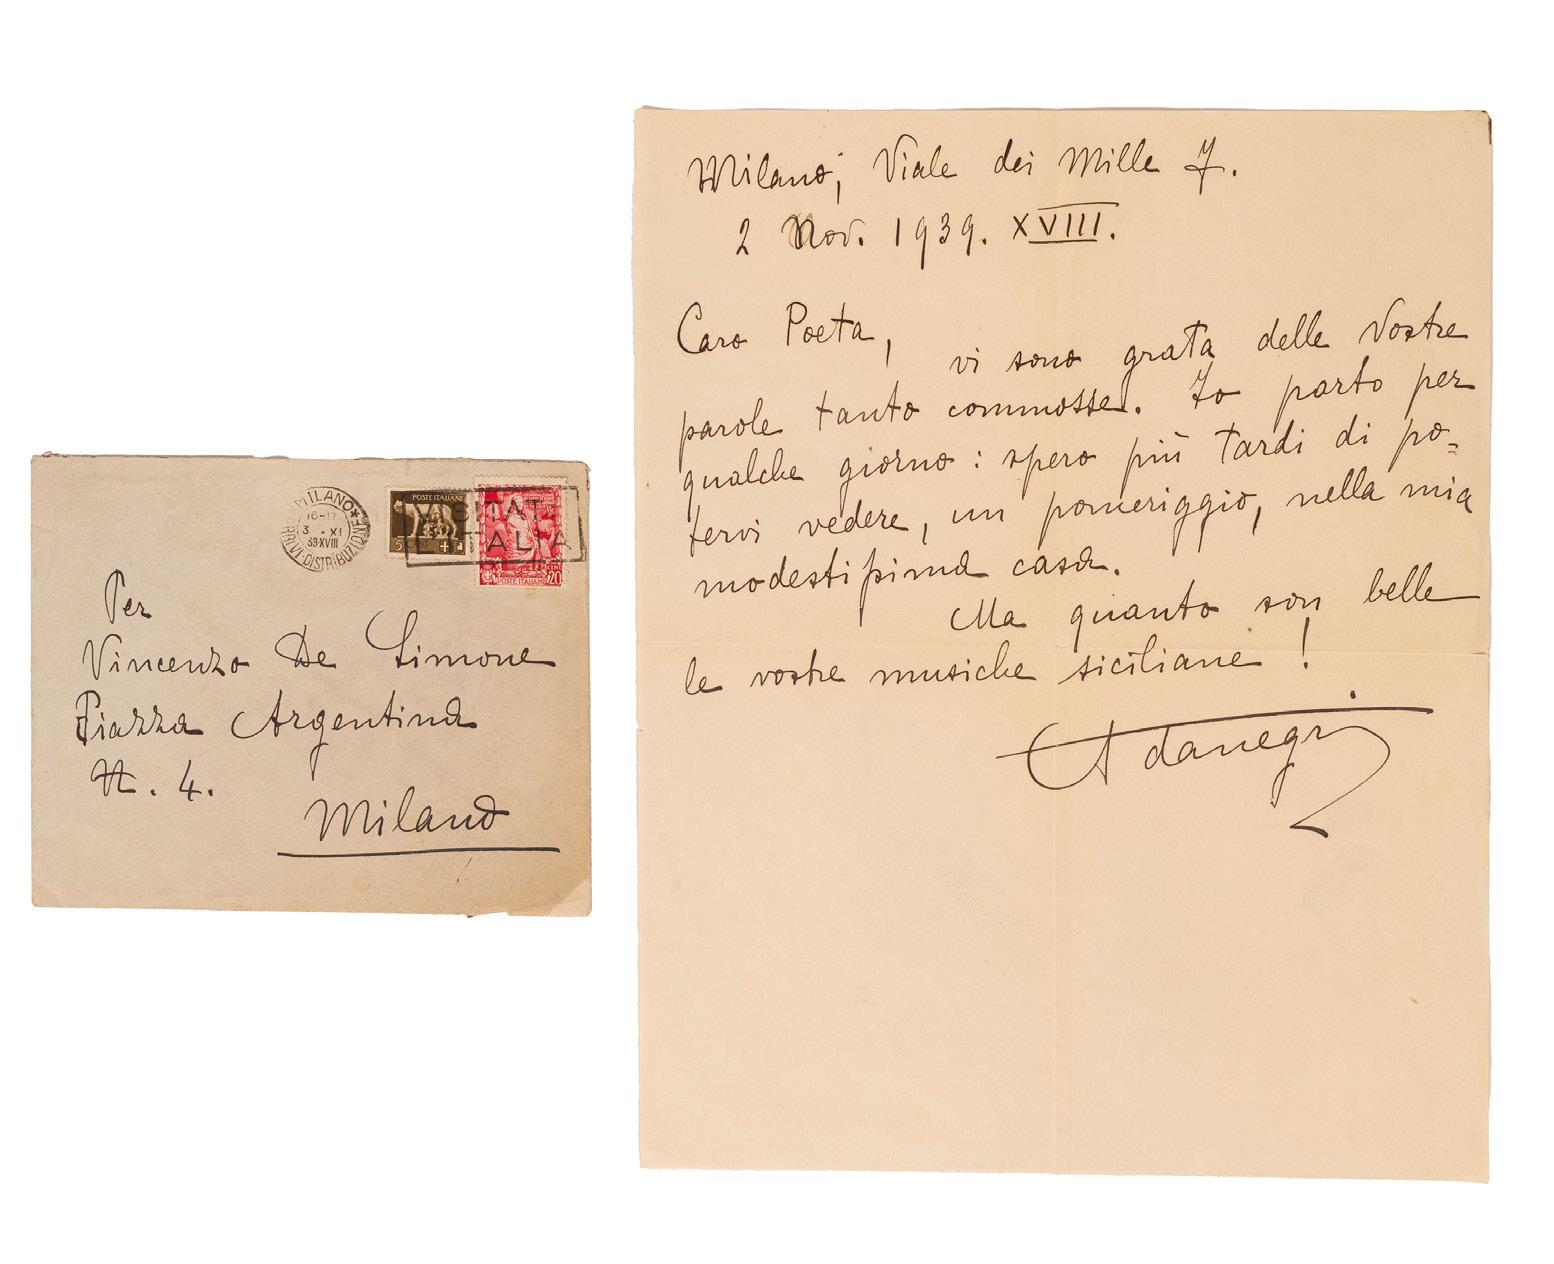 MILANO
16-17
3 . XI
39 XVIII
ARRIVI-DISTRIBUZIONE
POSTE ITALIANE
5
VISITAT
ITALIA
POSTE ITALIANE
CENT
20
Per
Vincenzo De Simone
Piazza Argentina
N. 4.
Milano
Milano, Viale dei Mille 7.
2 Nov. 1939. XVIII.
Caro Poeta,
vi sono grata delle vostre
parole tanto commosse. Io parto per
qualche giorno: spero più tardi di po=
tervi vedere, un pomeriggio, nella mia
modestissima casa.
Ma quanto son belle
le vostre musiche siciliane!
Ada Negri